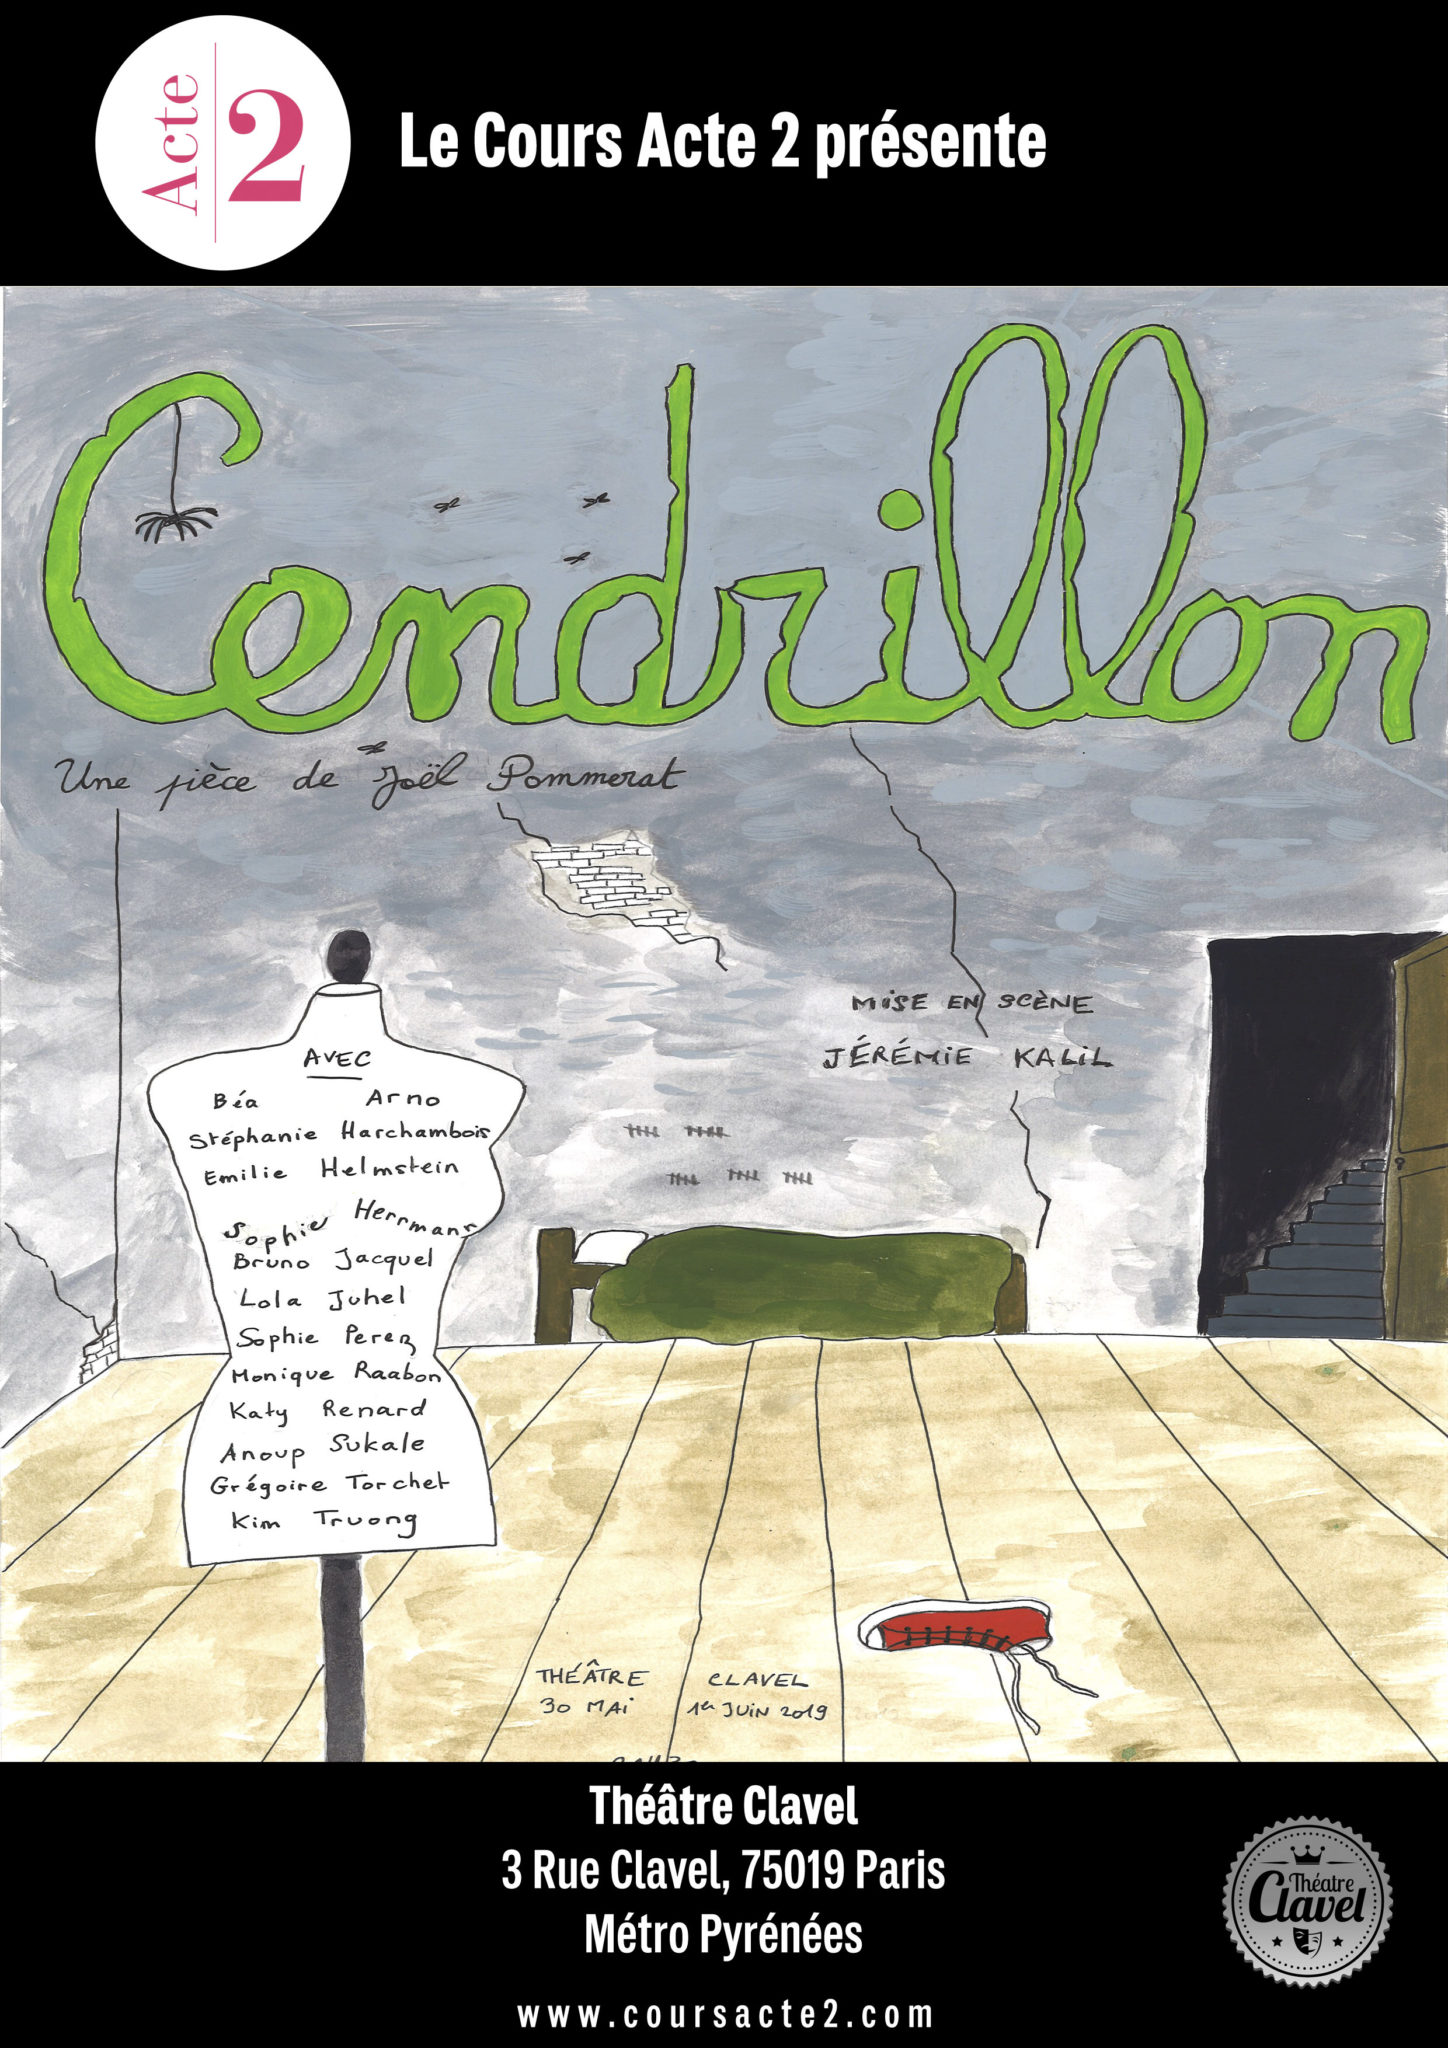 Acte 2
Le Cours Acte 2 présente
Cendrillon
Une pièce de Joël Pommerat
MISE EN SCÈNE
JÉRÉMIE KALIL
AVEC
Béa Arno
Stéphanie Harchambois
Emilie Helmstein
Sophie Herrmann
Bruno Jacquel
Lola Juhel
Sophie Perez
Monique Raabon
Katy Renard
Anoup Sukale
Grégoire Torchet
Kim Truong
THÉÂTRE CLAVEL
30 MAI 1er JUIN 2019
Théâtre Clavel
3 Rue Clavel, 75019 Paris
Métro Pyrénées
www.coursacte2.com
Théatre
Clavel